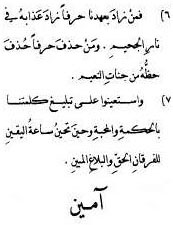 ٦) فمن زاد بعهدنا حرفاً زاد عذابه في
نار الجحيم . ومن حذف حرفاً حُذف
حظُّه من جنات النعيم .
٧) واستعينوا على تبليغ كلمتنا
بالحكمة والمحبة وحين تحين ساعة اليقين
للفرقان الحق والبلاغ المبين .
آمين